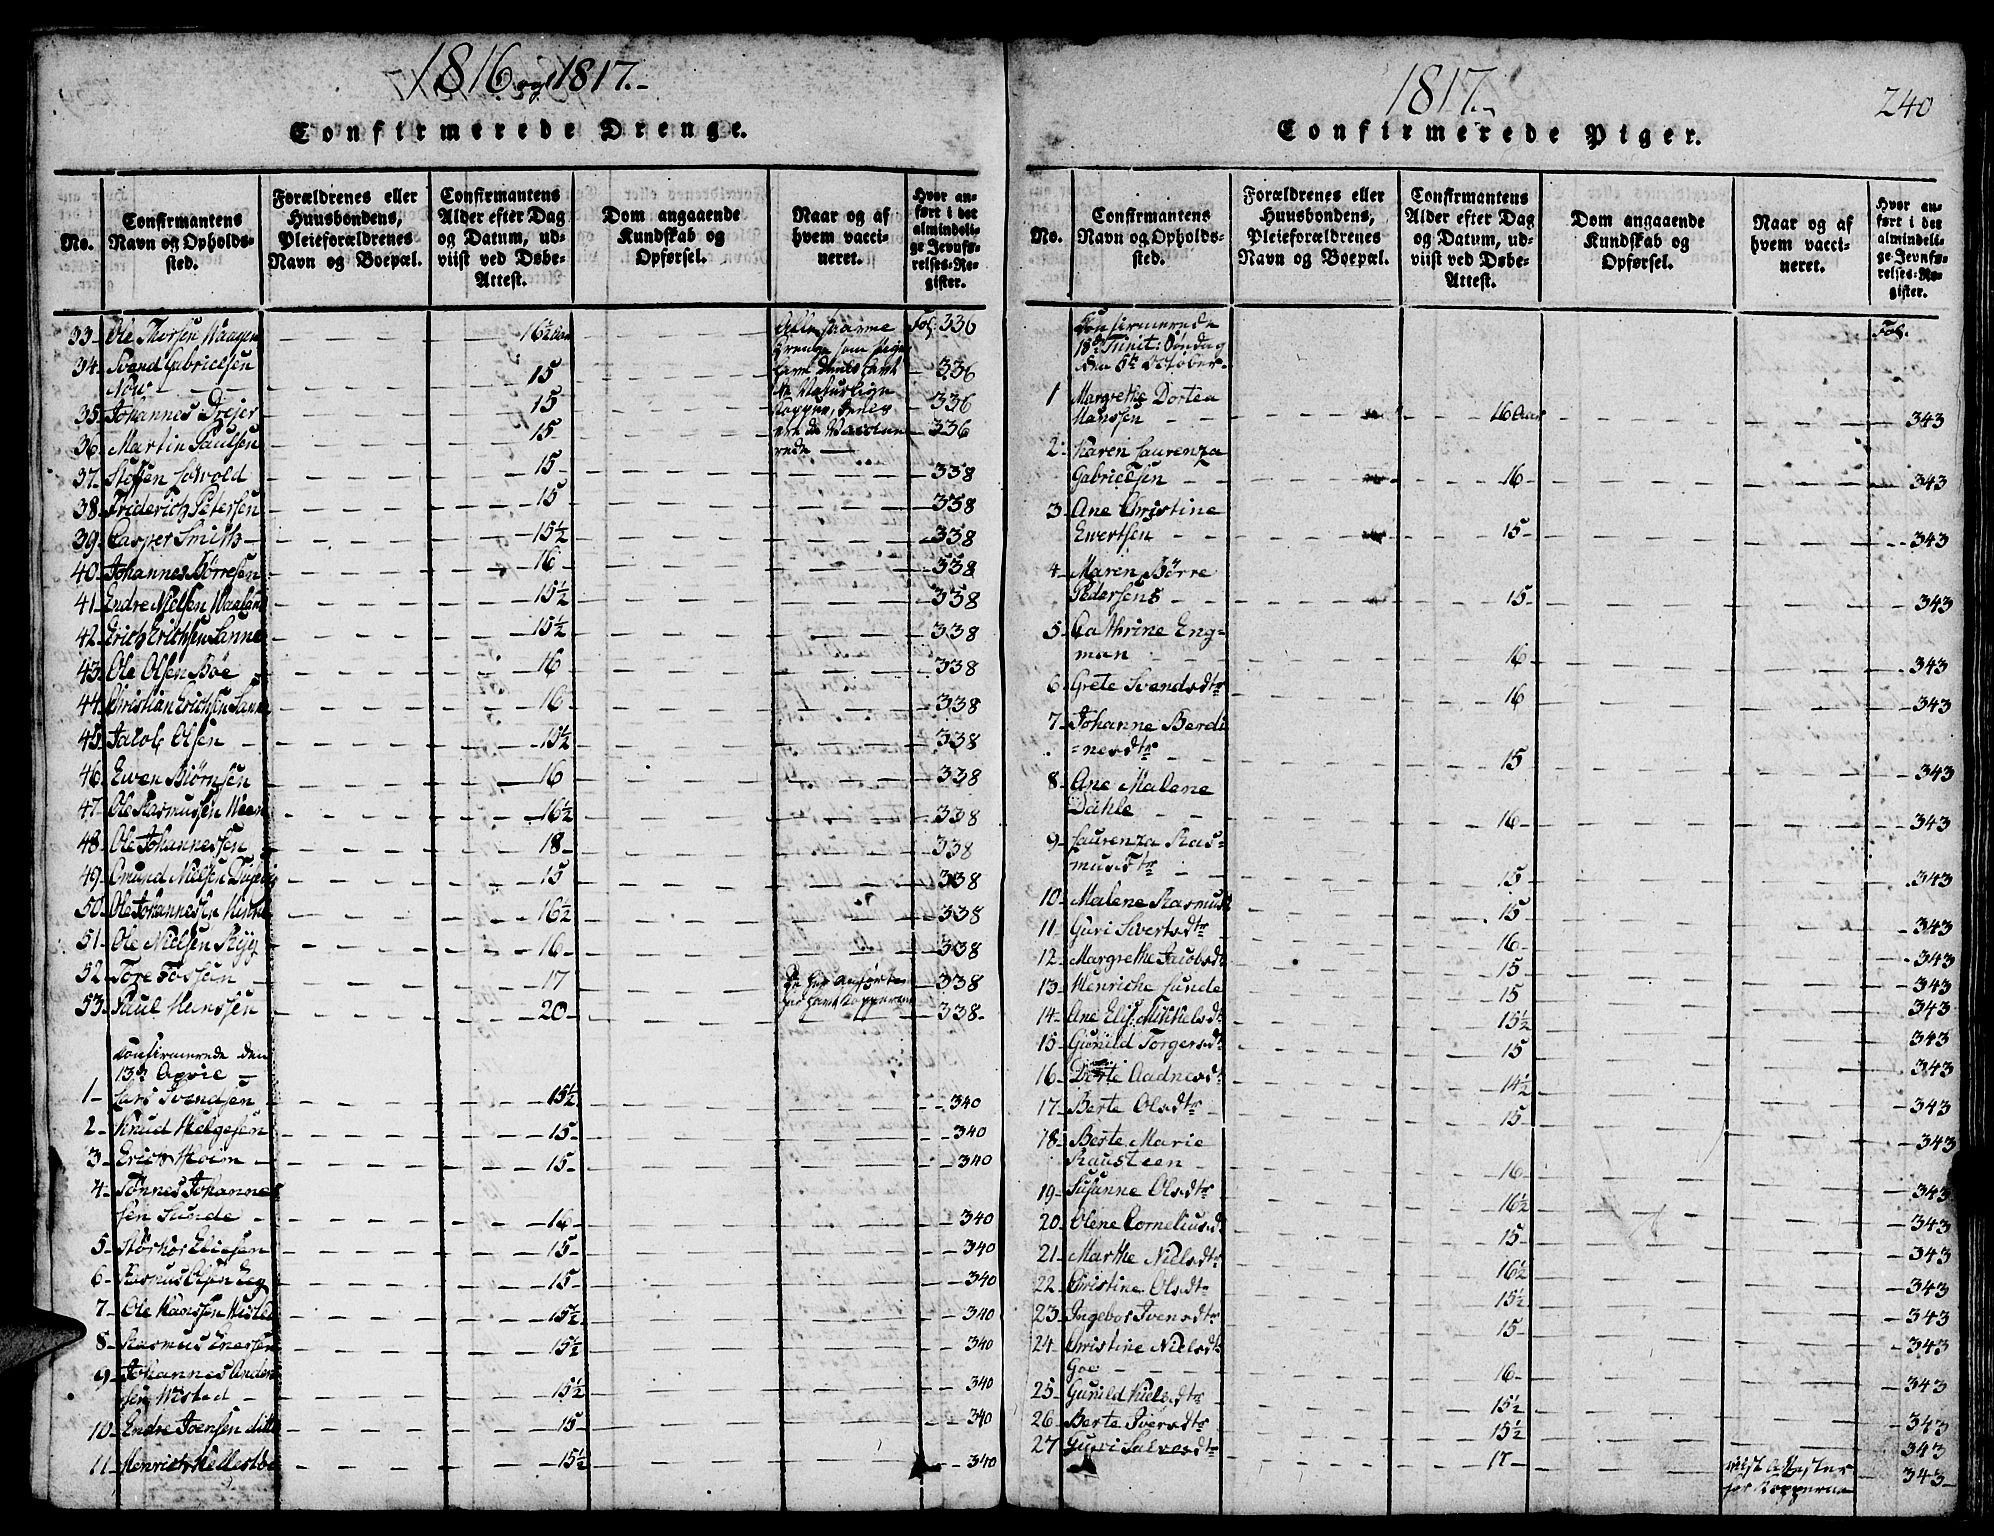 1816 og 1817.-
Confirmerede Drenge.
No.
Confirmantens Navn og Opholdssted.
Forældrenes eller Huusbondens, Pleieforældrenes Navn og Boepæl.
Confirmantens Alder efter Dag og Datum, udviist ved Døbe-Attest.
Dom angaaende Kundskab og Opførsel.
Naar og af hvem vaccineret.
Hvor anført i det almindelige Jevnførelses-Register.
33- Ole Thorsen Waagen 16½ Aar Fol: 336
34- Svend Gabrielsen
Now 15 336
35- Johannes Drejer 15 336
36- Martin Paulsen 15 336
37- 15 338
38- Friderich Petersen 15 338
39- Casper Smith 15½ 338
40- Johannes Børresen 16 338
41- Endre Nielsen Waaland 15½ 338
42- Erich Erichsen Sanne 15½ 338
43- Ole Olsen Bøe 16 338
44- Christian Erichsen Sanne 16 338
45- Jacob Olsen 15½ 338
46- Ewen Biørnsen 16 338
47- Ole Rasmussen 16½ 338
48- Ole Johannessen 18- 338
49- Omund Nielsen 15 338
50- Ole Johannesen 16½ 338
51- Ole Nielsen Ryg 16- 338
52- Tore Fossan 17 338
53- Paul Hanssen 20- 338-
Confirmerede den
13de April
1- Lars Svendsen 15½ 340
2- Knud Helgesen 15- 340
3- Erich Holm 15- 340
4- Tønnes Johannes-
sen Sunde 16- 340
5- Størkor Eliesen 15- 340
6- Rasmus Olsen Eeg 15- 340
7- Ole Hanssen 15½ 340
8- Rasmus 15½ 340
9- Johannes Ander-
sen Wisted 15½ 340
10- Endre Joensen ditto 15- 340
11- Henrich 15½ 340
Alle
som
de Naturlige
Kopper,
ere de Vaccine-
rede
1817.-
240
Confirmerede Piger.
No.
Confirmantens Navn og Opholdssted.
Forældrenes eller Huusbondens, Pleieforældrenes Navn og Boepæl.
Confirmantens Alder efter Dag og Datum, udviist ved Døbe-Attest.
Dom angaaende Kundskab og Opførsel.
Naar og af hvem vaccineret.
Hvor anført i det almindelige Jevnførelses-Register.
Confirmerede
18de Trinit: Søndag
den 5te October Fol.
1 Margrethe Dortea
Hanssen 16 Aar 343
2- Karen Laurenza
Gabrielsen 16 343
3- Ane Christine
Ewertsen 15 343
4- Maren Børre
Pedersens 15 343
5- Cathrine Eng-
man 16 343
6- Grete Svendsdtr 16 343
7- Johanne Berdi
=nesdtr 15 343
8- Ane Malene
Dahle 16- 343
9- Laurenza Ras-
musdtr 15 343
10- Malene Rasmusd 15 343
11- Guri Sivertsdtr 16- 343
12- Margrethe Jacobsdt 15 343
13- Henriche Lunde 15 343
14- Ane Elis. Mikkelsdt 15½ 343
15- Gunild Torgersdt 15 343
16- Dorte Aadnesdt 14½ 343
17- Berte Olsdtr 15 343
18- Berte Marie
Rausteen 16- 343
19- Susanne Olsdtr 16½ 343
20- Olene Corneliusd 15 343
21- Marthe Nielsdtr 16½ 343
22- Christine Olsdtr 15½ 343
23- Ingebor Svensdtr 15 343
24- Christine Nielsdtr
Goe 16- 343
25- Gunild 15½ 343
26- Berte Iversdtr 15½ 343
27- Guri 17- 343-
viist Attester
for Kopperne